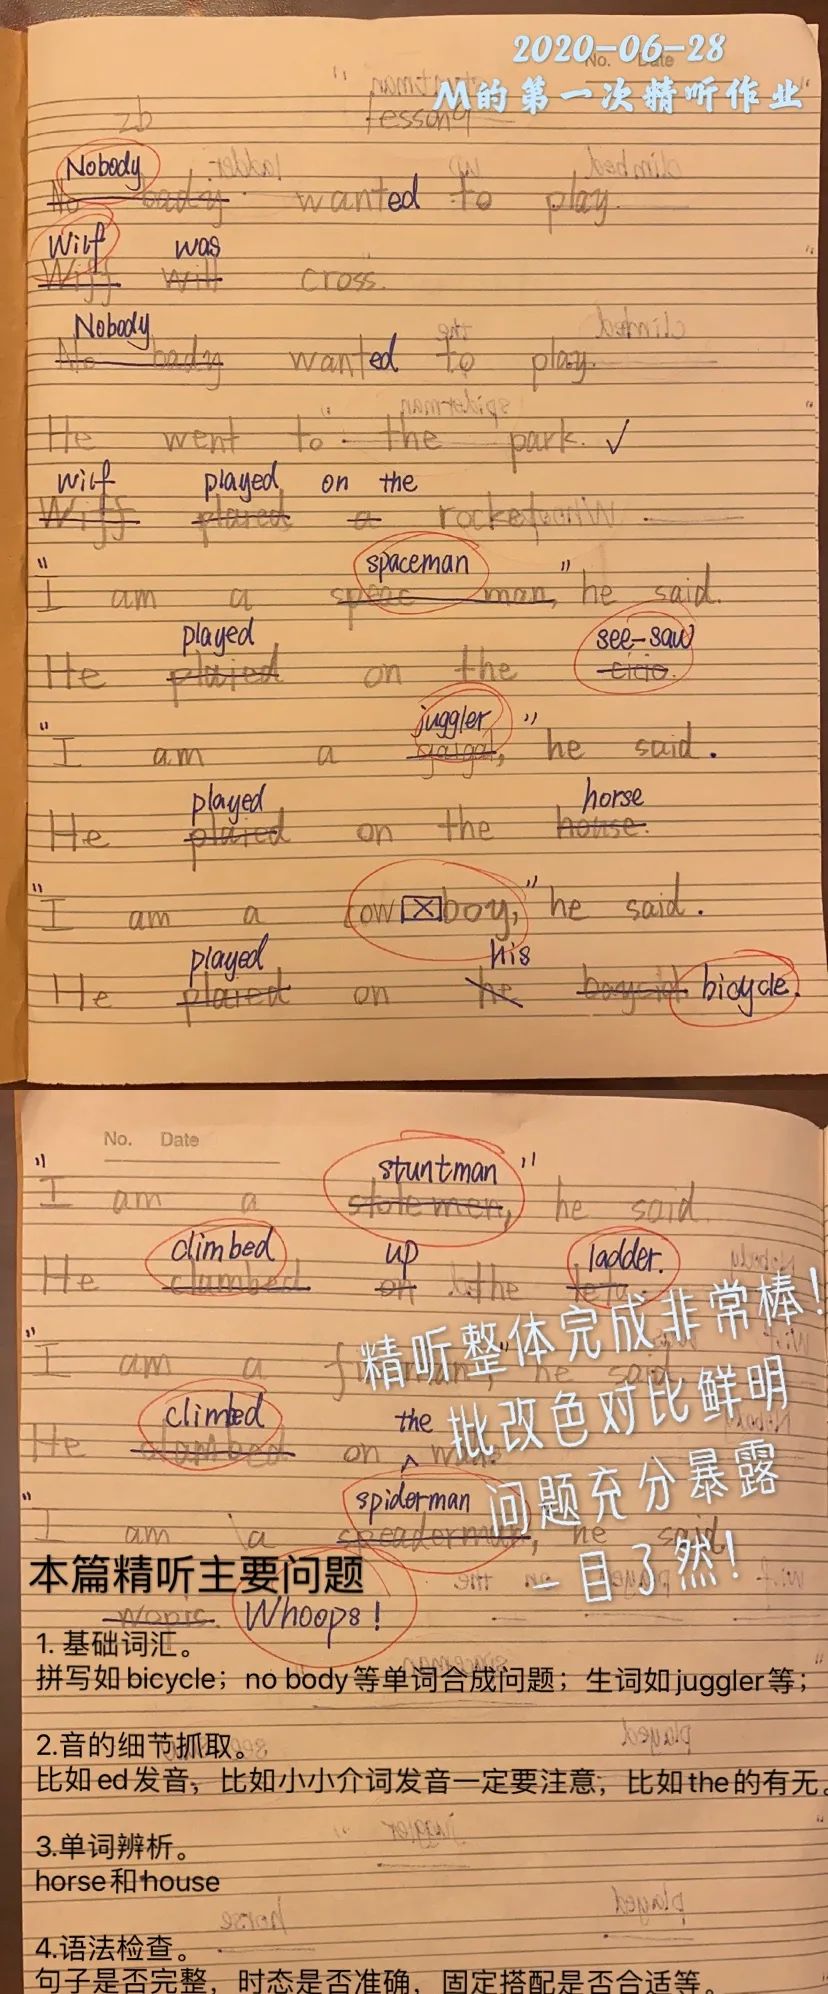 No. Date
2020-06-28
M的第一次精听作业
2b lesson9
Nobody
No bady wanted to play.
Wilf was
Wiff will cross.
Nobody
No bady wanted to play.
He went to the park. ✓
Wilf played on the
Wiff plared a rocket.
spaceman
"I am a speac man," he said.
played see-saw
He plaied on the cicio.
juggler
"I am a gaigal," he said.
played horse
He plaied on the house.
"I am a cow boy," he said.
played his
He plared on he baycicl. bicycle.
No. Date
stuntman
"I am a stole men," he said.
climbed up ladder.
He clambed on the
精听整体完成非常棒!
"I am a he said.
批改色对比鲜明
climbed the
He clambed on
问题充分暴露
spiderman
"I am a speaderman, he said.
一目了然!
本篇精听主要问题
Whoops!
1. 基础词汇。
拼写如bicycle；no body等单词合成问题；生词如juggler等；
2.音的细节抓取。
比如ed发音，比如小小介词发音一定要注意，比如the的有无。
3.单词辨析。
horse和house
4.语法检查。
句子是否完整，时态是否准确，固定搭配是否合适等。